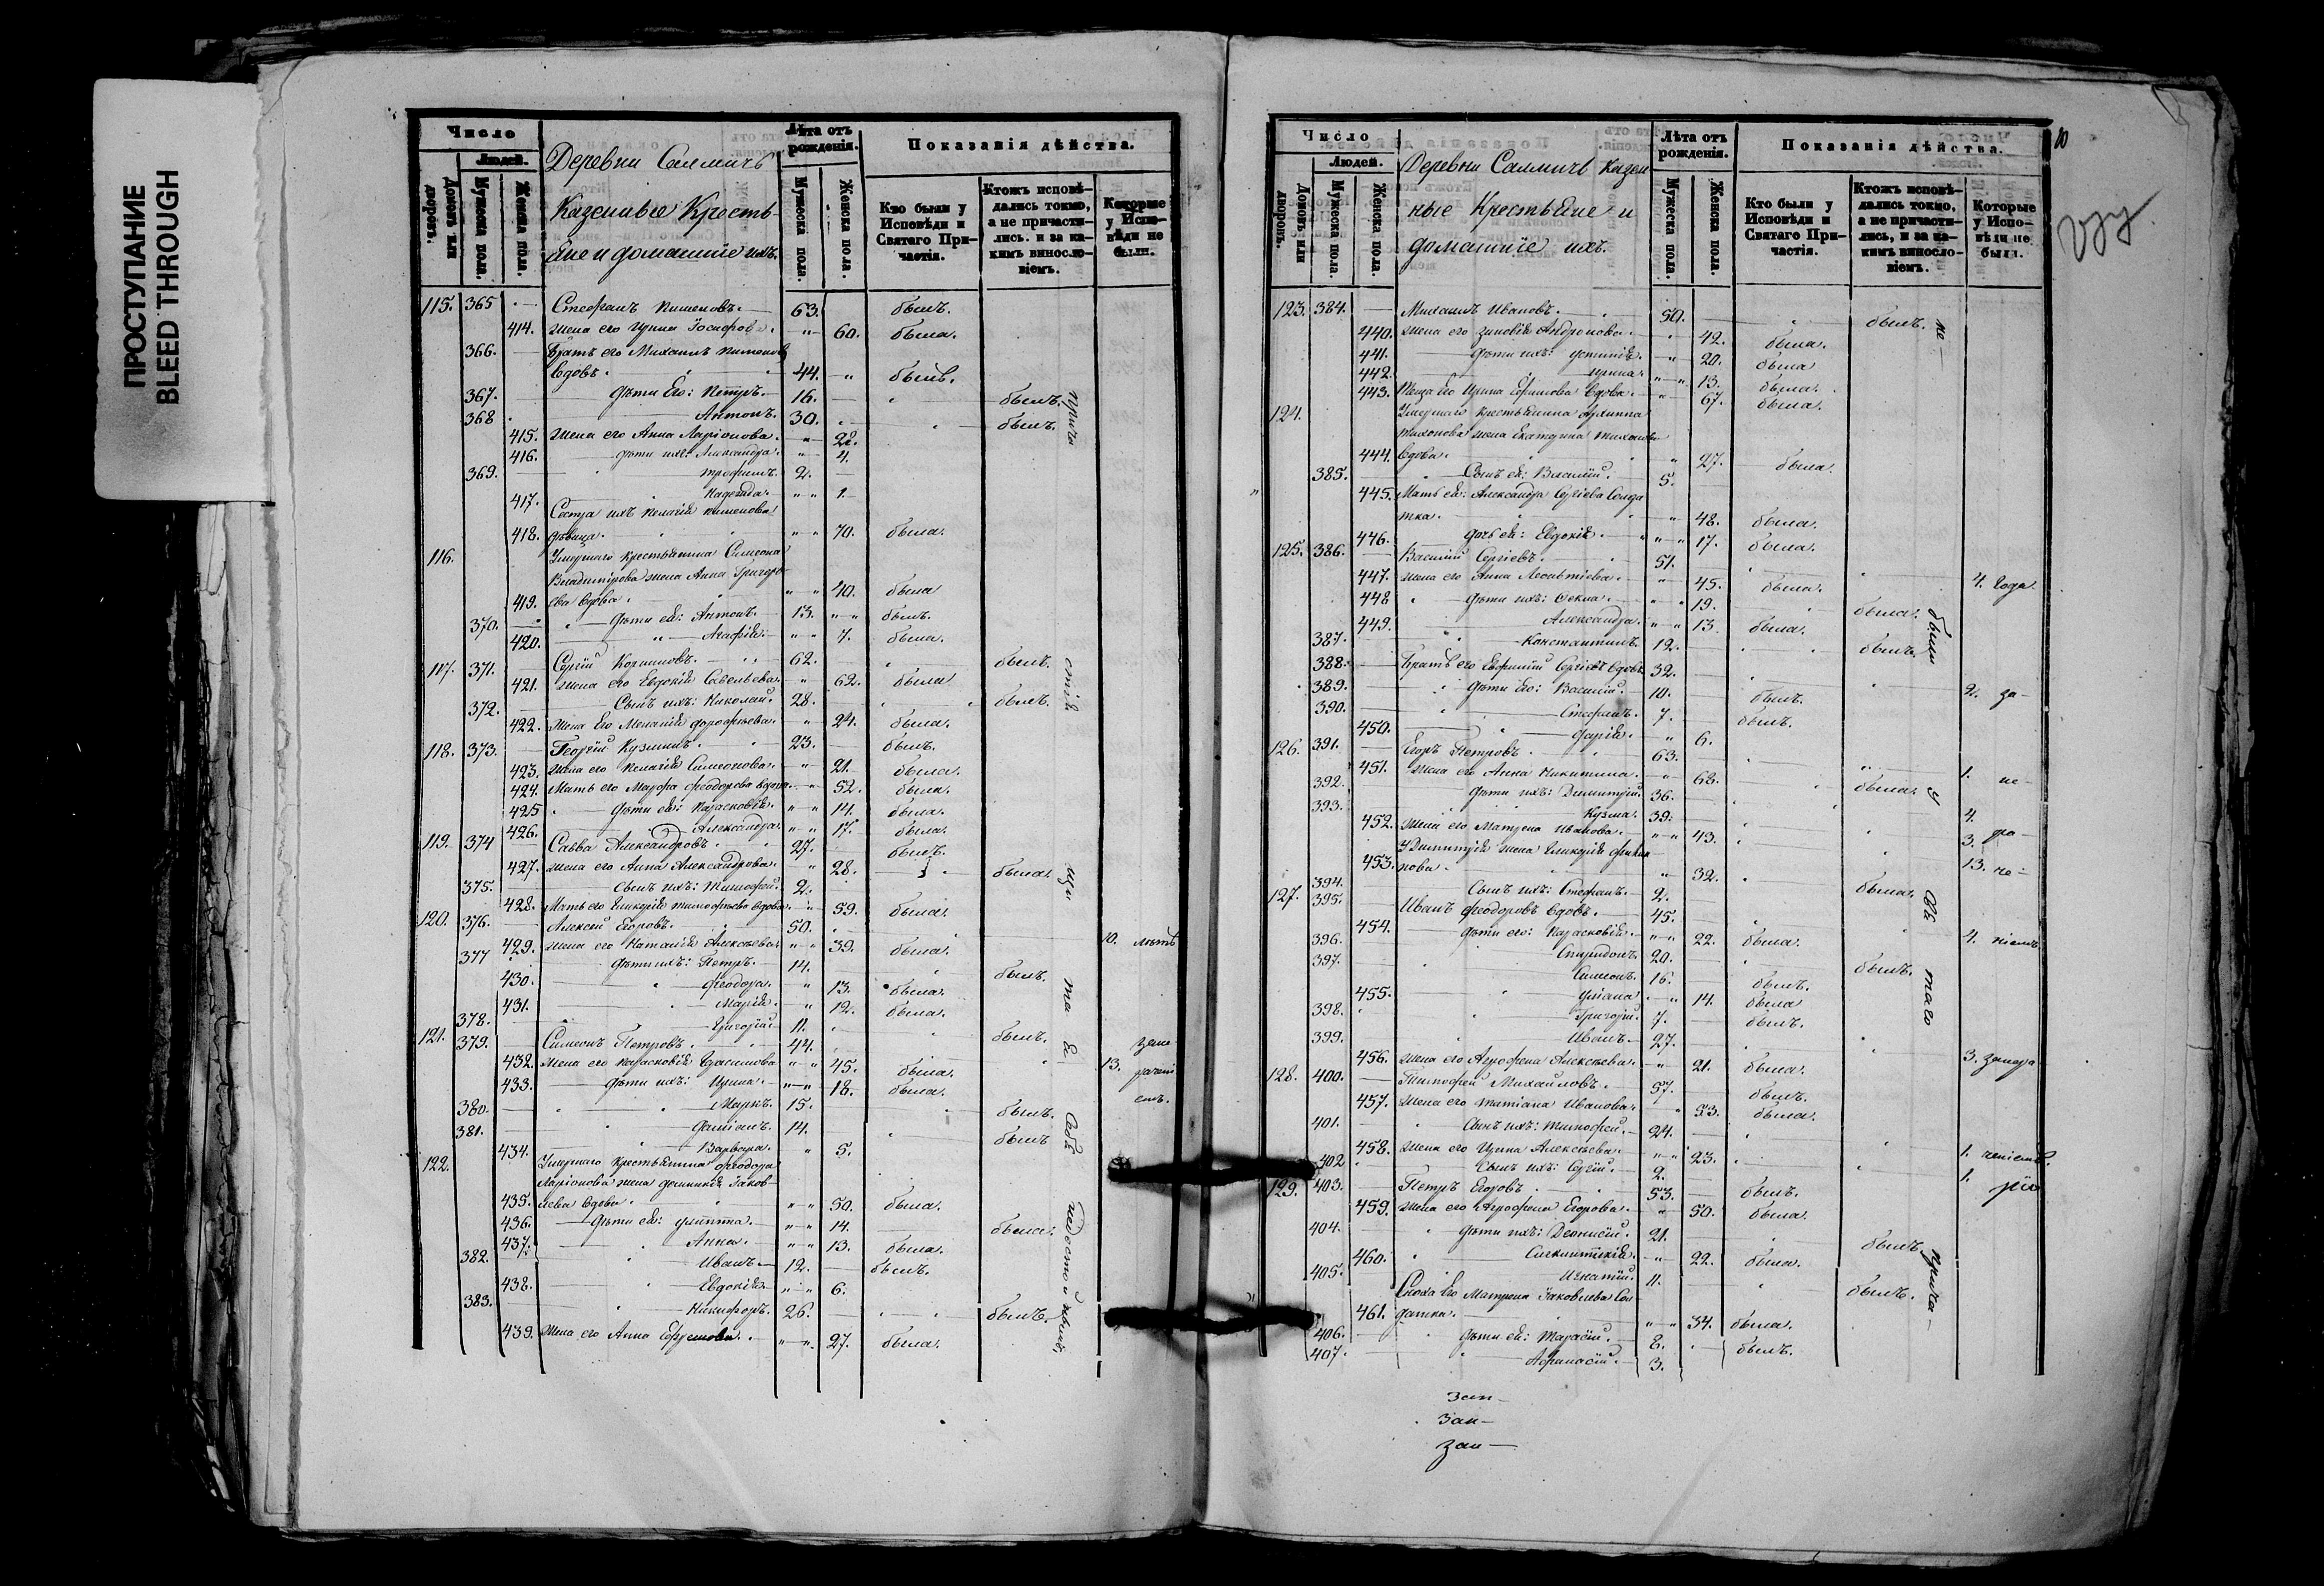 ПРОСТУПАНИЕ
BLEED THROUGH
Число
Людей.
Домовъ или дворовъ.
Мужеска пола.
Женска пола.
Деревни Саммичъ
Казенные Кресть-
яне и домашние ихъ.
Лѣта отъ рожденія.
Мужеска пола.
Женска пола.
Показанія дѣйства.
Кто были у Исповѣди и Святаго Причастія.
Ктожъ исповѣдались токмо, а не причастились. и за какимъ винословіемъ.
Которые у Исповѣди не были.
115. 365 Стефанъ Пименовъ. 63. былъ.
414. жена его Ирина Іосифова. 60. была.
366. Братъ его Михаилъ Пименовъ
вдовъ. 44. былъ.
367. Дѣти его: Петръ. 16. былъ.
368 Антонъ. 30. былъ.
415. жена его Анна Ларіонова. 28.
416. дѣти ихъ: Александра. 4.
369. Трофимъ. 2.
417. Надежда. 1.
Сестра ихъ Пелагія Пименова
418. дѣвица. 70. была.
116. Умершаго крестьянина Симеона
Владимірова жена Анна Григорь-
419. ева вдова. 40. была
370. Дѣти ея: Антонъ. 13. былъ.
420. Агафія. 7. была.
117. 371. Сергій 62. былъ.
421. жена его Евдокія Савельева. 62. была
372. Сынъ ихъ: Николай. 28. былъ.
422. Жена его Меланія Дорофѣева. 24. была.
118. 373. Георгій Кузминъ. 23. былъ.
423. жена его Пелагія Симеонова. 21. была.
424. Мать его Марфа Феодорова вдова. 52. была.
425 Дѣти ея: Парасковія. 14. была.
426. Александра. 17. была.
119. 374 Савва Александровъ. 27. былъ.
427. жена его Анна Александрова. 28. была.
375. Сынъ ихъ: Тимофей. 2.
428. Мать его Гликерія Тимофѣева вдова. 59. была.
120. 376. Алексѣй Егоровъ. 50. 10. лѣтъ
429. жена его Наталія Алексѣева. 39. была.
377 дѣти ихъ: Петръ. 14. былъ.
430. Феодора. 13. была.
431. Марія. 12. была.
378. Григорій. 11. былъ.
121. 379. Симеонъ Петровъ. 44. 13.
432. жена его Парасковія Герасимова 45. была.
433. дѣти ихъ: Ирина. 18. была.
380. Маркъ. 15. былъ.
381. Даміанъ. 14. былъ
434. Варвара. 5.
122. Умершаго крестьянина Феодора
Ларіонова жена Домникія Яков-
435. лева вдова. 50. была.
436. Дѣти ея: 14. была.
437. Анна. 13. была.
382. Иванъ. 12. былъ.
438. Евдокія. 6.
383. Никифоръ. 26. былъ.
439. жена его Анна Ефремова. 27. была.
Число
Людей.
Домовъ или дворовъ.
Мужеска пола.
Женска пола.
Деревни Саммичъ Казен
ные Крестьяне и
домашніе ихъ.
Лѣта отъ рожденія.
Мужеска пола.
Женска пола.
Показанія дѣйства.
Кто были у Исповѣди и Святаго Причастія.
Ктожъ исповѣдались токмо, а не причастились, и за какимъ винословіемъ.
Которые у Исповѣди не были.
123. 384. Михаилъ Ивановъ. 50. былъ. не
440. жена его Зиновія Андронова. 42. была.
441. дѣти ихъ: Устинія. 20. была
442. Ирина. 13. была.
443. Теща его Ирина Ефимова вдова. 67. была.
124. Умершаго крестьянина Архиппа
Тихонова жена Екатерина Тихонова
444. вдова. 27. была.
385. Сынъ ея: Василій. 5.
445. Мать ея: Александра Сергіева Солда
тка. 48. была.
446. дочь ея: Евдокія. 17. была.
125. 386. Василій Сергіевъ. 51. 4. года
447. жена его Анна Леонтіева. 45. была.
448 дѣти ихъ: Фекла. 19. была.
449. Александра. 13. была.
387. Константинъ. 12. былъ.
388. Братъ его Евфимій Сергіевъ вдовъ 32. 2. за
389. дѣти его: Василій. 10. былъ.
390. Стефанъ. 7. былъ.
450. Дарія. 6.
126. 391. Егоръ Петровъ. 63. 1. не
451. жена его Анна Никитина. 63. была.
392. дѣти ихъ: Димитрій. 36. 4.
393. Кузма. 39. 3.
452. жена его Матрена Иванова. 43. 13. не
Димитрія жена Гликерія Филип
453. пова. 32. была.
394. Сынъ ихъ: Стефанъ. 2.
127. 395. Иванъ Феодоровъ вдовъ. 45. 4.
454. дѣти его: Парасковія. 22. была.
396. Спиридонъ. 20. былъ.
397. Симеонъ. 16. былъ.
455. Уліана 14. была
398. Григорій. 7. былъ.
399. Иванъ. 27. 3.
456. жена его Агрофена Алексѣева. 21. была.
128. 400. Тимофей Михайловъ. 57. былъ.
457. жена его Татіана Иванова. 53. была.
401. Сынъ ихъ: Тимофей. 24. 1.
458. жена его Ирина Алексѣева. 23. 1.
402 Сынъ ихъ: Сергій. 2.
129. 403. Петръ Егоровъ. 53. былъ.
459. жена его Агрофена Егорова. 50. была.
404. дѣти ихъ: Деонисій. 21. былъ.
460. Синклитикія. 22. была.
405. Игнатій. 11. былъ.
Сноха его Матрена Яковлева Сол
461. датка. 34. была.
406. дѣти ея: Тарасій. 8. былъ.
407. Афанасій. 3.
зап
зап
зап